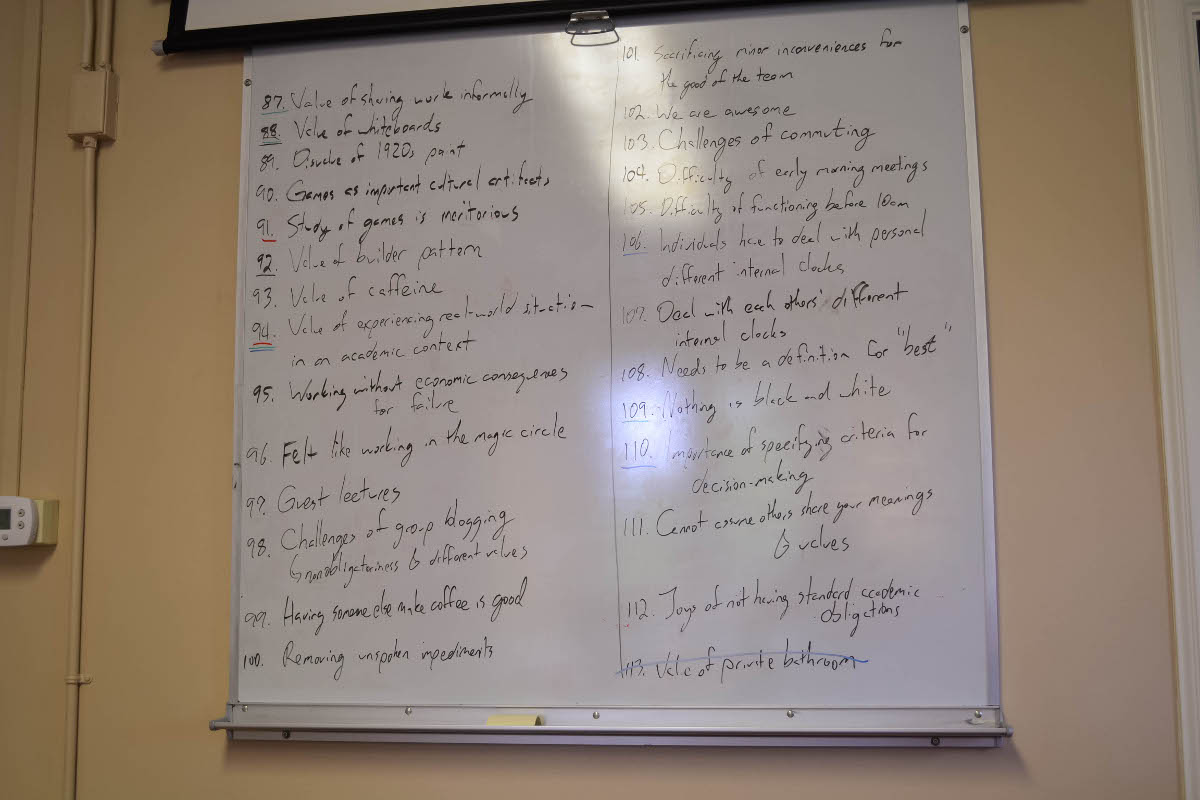 87. Value of sharing work informally
88. Value of whiteboards
89. Disvalue of 1920s paint
90. Games as important cultural artifacts
91. Study of games is meritorious
92. Value of builder pattern
93. Value of caffeine
94. Value of experiencing real-world situation
in an academic context
95. Working without economic consequences
for failure
96. Felt like working in the magic circle
97. Guest lectures
98. Challenges of group blogging
↳ nonobligatoriness & different values
99. Having someone else make coffee is good
100. Removing unspoken impediments
101. Sacrificing minor inconveniences for
the good of the team
102. We are awesome
103. Challenges of commuting
104. Difficulty of early morning meetings
105. Difficulty of functioning before 10am
106. Individuals have to deal with personal
different internal clocks
107. Deal with each others' different
internal clocks
108. Needs to be a definition for "best"
109. Nothing is black and white
110. Importance of specifying criteria for
decision-making
111. Cannot assume others share your meanings
& values
112. Joys of not having standard academic
obligations
113. Value of private bathroom